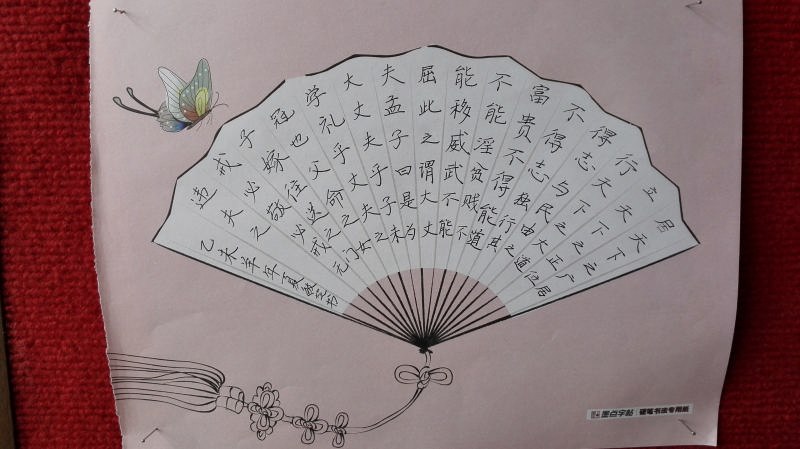 居天下之广居
立天下之正位
行天下之大道
得志与民由之
不得志独行其
富贵不得能道
不能淫贫贱不
能移威武不能
屈此之谓大丈
夫孟子曰是为
大丈夫乎子未
学礼乎丈夫之
冠也父命之女
子嫁往送之门
戒必敬必戒无
违夫之
乙未羊年夏书
墨点字帖 硬笔书法专用纸